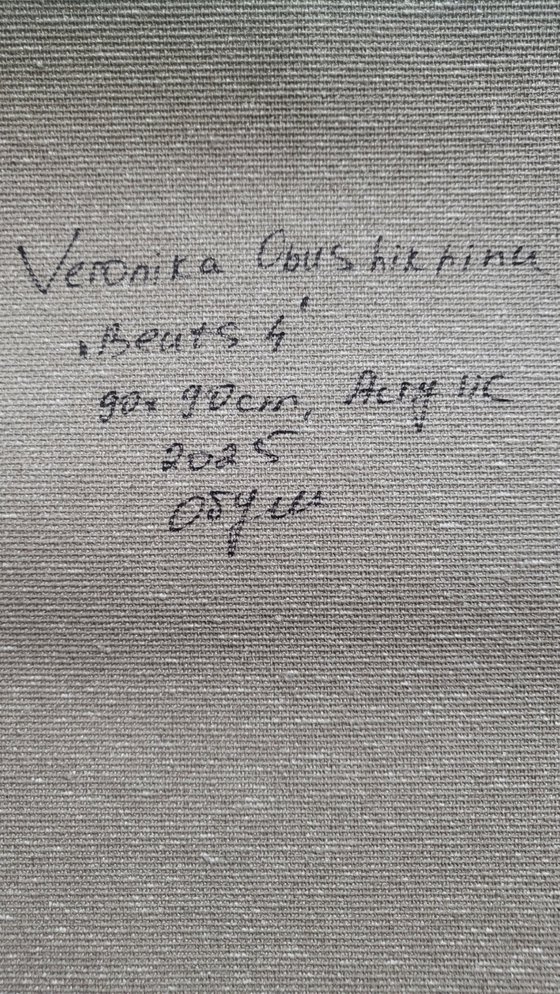 Veronika Obushikhina
"Beats 4"
90x90cm, Acrylic
2025
Обуш